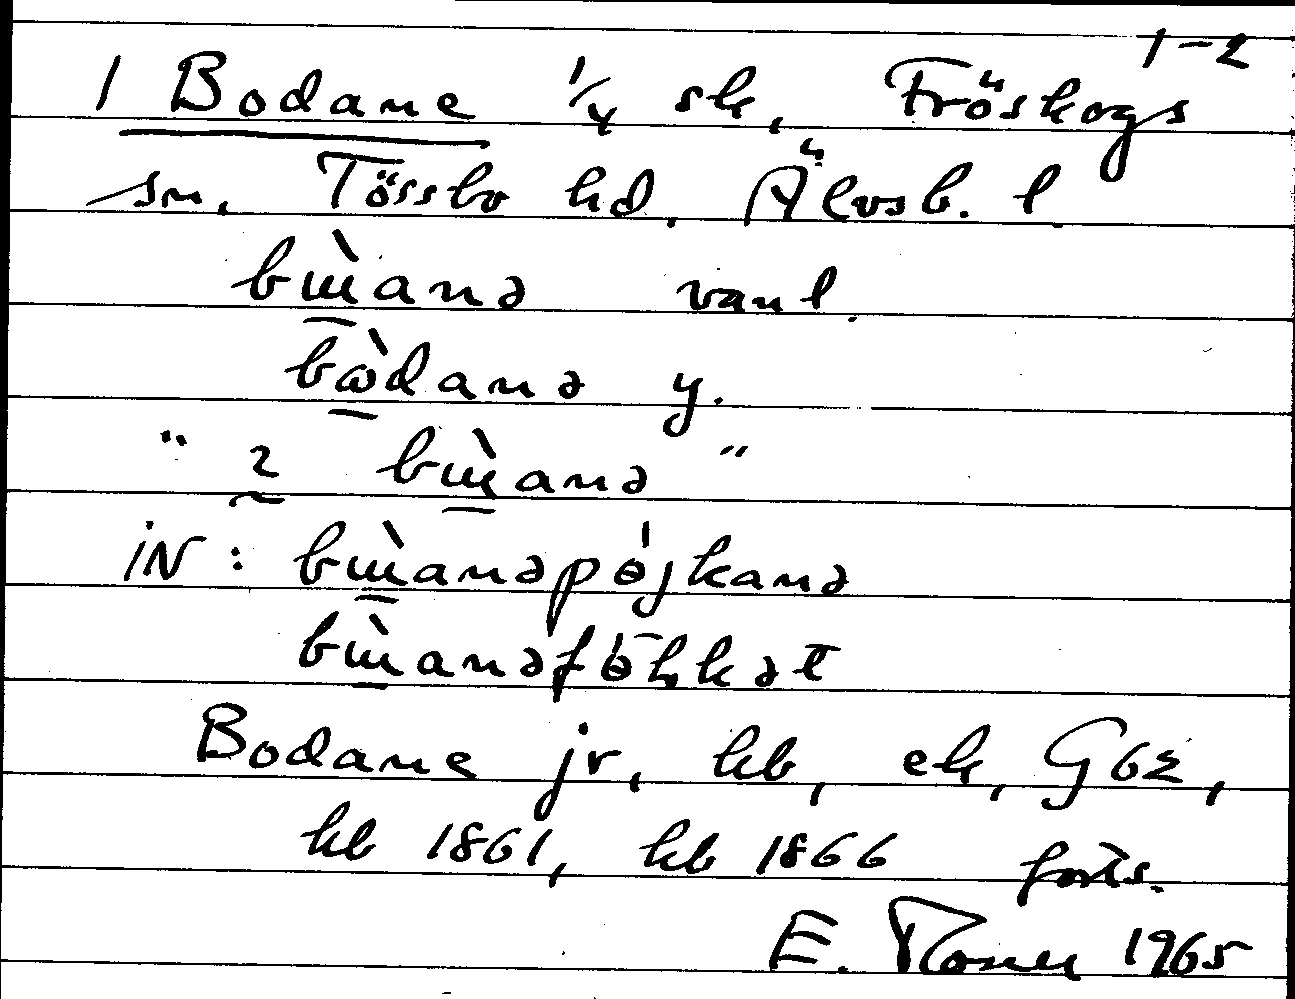 1-2
1 Bodane 1/4 sk, Fröskogs
sn. Tössbo hd. Älvsb. l.
bɯ̀anə vanl.
bòdanə y.
" 2 bɯ̀anə "
iN: bɯ̀anəpɵ́jkanə
bɯ̀anəfɵ́ļkət
Bodane jr, kb, ek, Gbz,
kb 1861, kb 1866 forts.
E. 1965